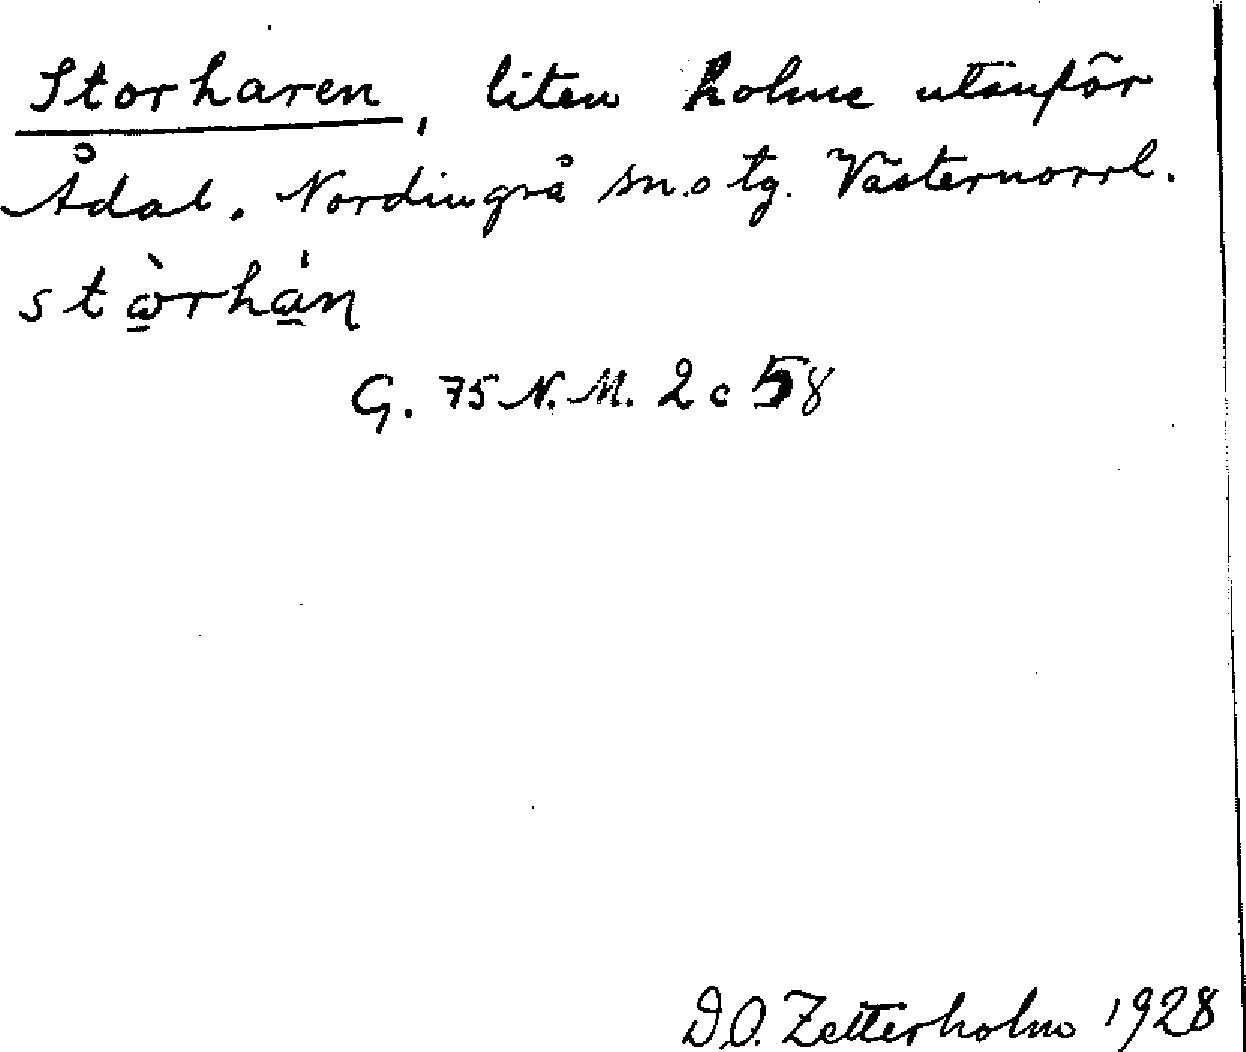 Storharen, liten holme utanför
Ådal. Nordingrå sn. o tg. Västernorrl.
stὼ̲rhá̲ɳ
G. 75 N. M. 2 c 58
D.O. Zetterholm 1928